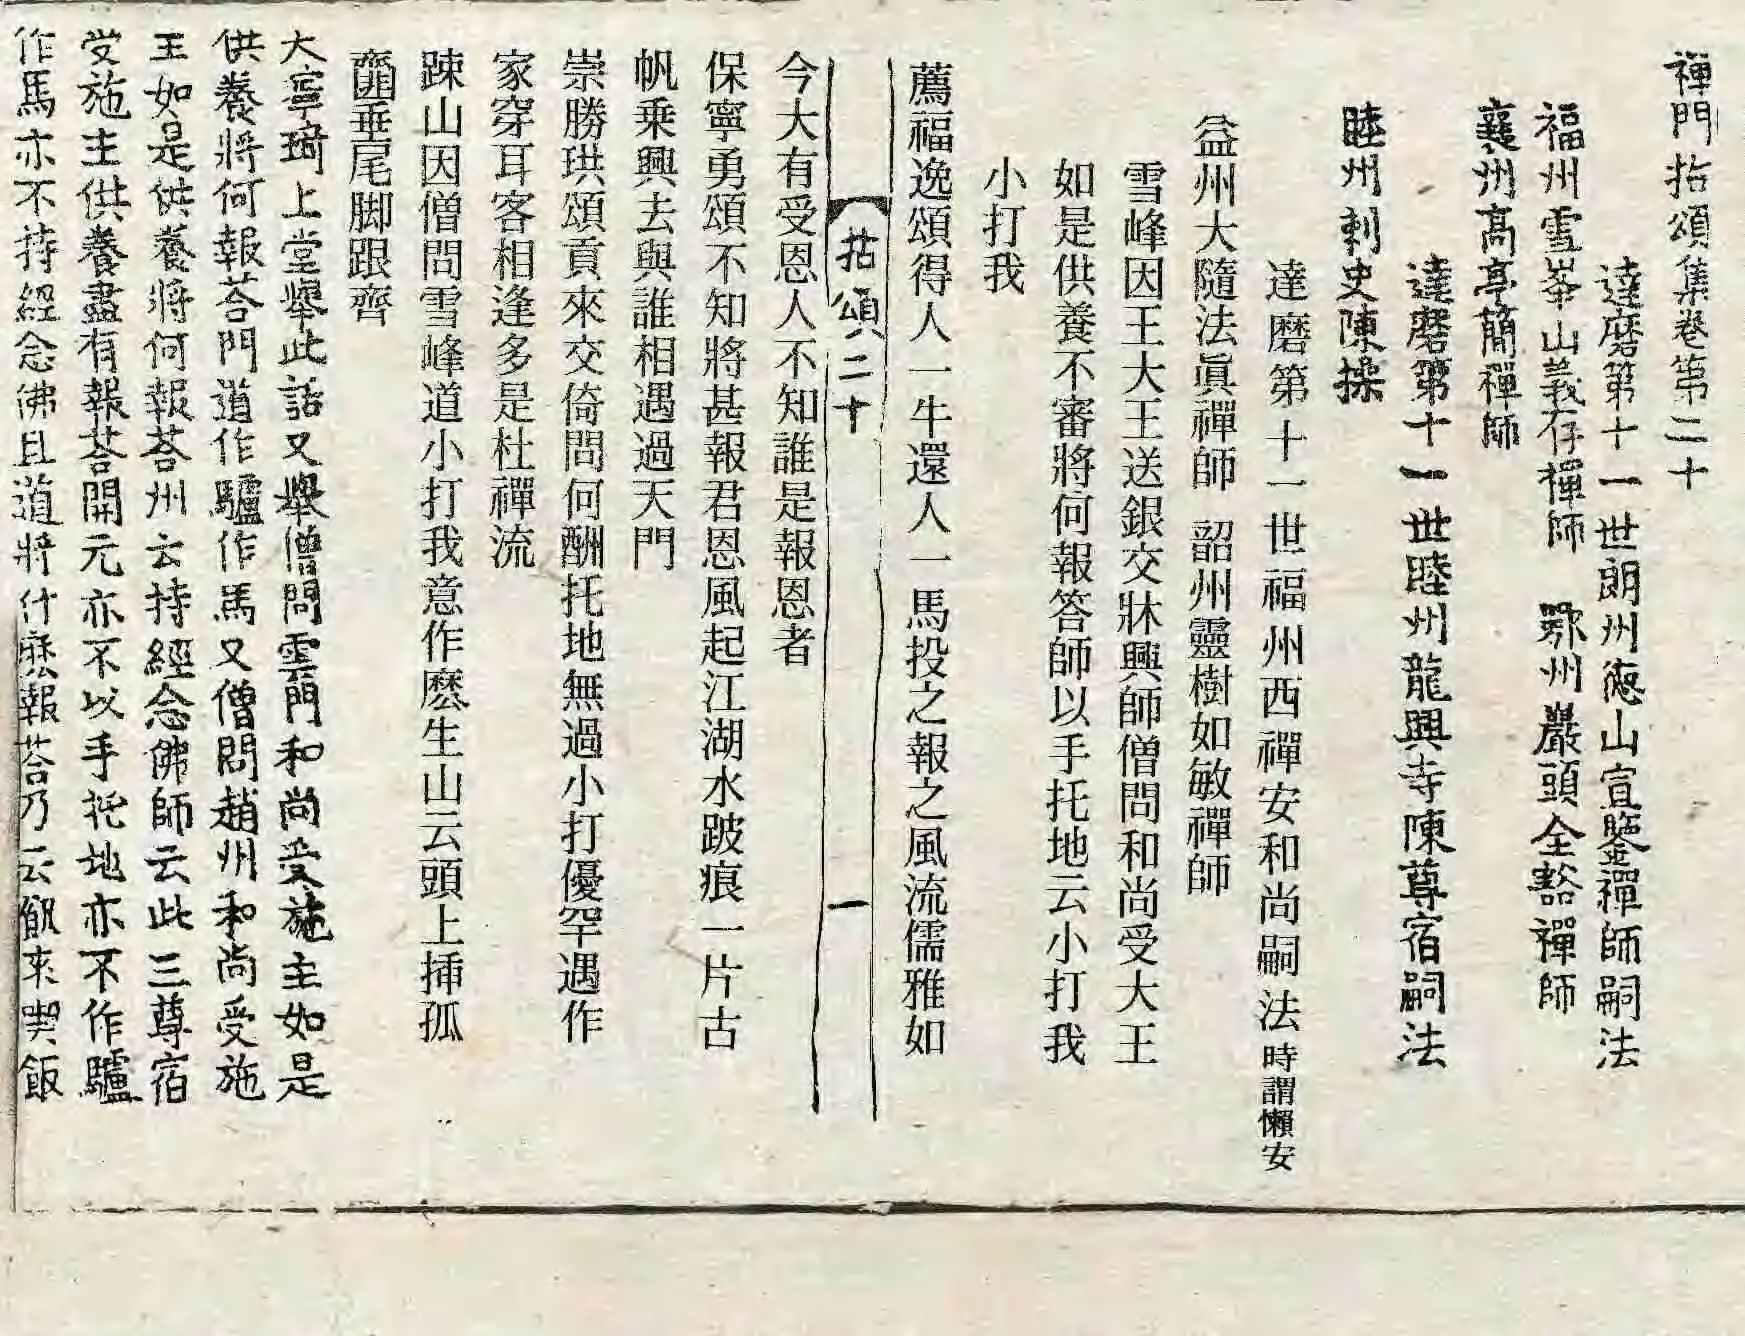 禪門拈頌集卷第二十
達磨第十一世朗州德山宣鑒禪師嗣法
福州雪峯山義存禪師　鄂州巖頭全豁禪師
襄州高亭簡禪師
達磨第十一世睦州龍興寺陳尊宿嗣法
睦州刺史陳操
達磨第十一世福州西禪安和尚嗣法時謂懶安
益州大隨法眞禪師　韶州靈樹如敏禪師
雪峰因王大王送銀交牀興師僧問和尚受大王
如是供養不審將何報答師以手托地云小打我
小打我
薦福逸頌得人一牛還人一馬投之報之風流儒雅如
拈頌二十　一
今大有受恩人不知誰是報恩者
保寧勇頌不知將甚報君恩風起江湖水皺痕一片古
帆乗興去與誰相遇過天門
崇勝珙頌貢來交倚問何酬托地無過小打優罕遇作
家穿耳客相逢多是杜禪流
踈山因僧問雪峰道小打我意作麽生山云頭上揷孤
齊垂尾脚跟齊
大寧琦上堂擧此話又擧僧問雲門和尚受施主如是
供養將何報荅門道作驢作馬又僧問趙州和尚受施
主如是供養將何報荅州云持經念佛師云此三尊宿
受施主供養盡有報荅開元亦不以手托地亦不作驢
作馬亦不持經念佛且道將什麽報荅乃云飢來喫飯